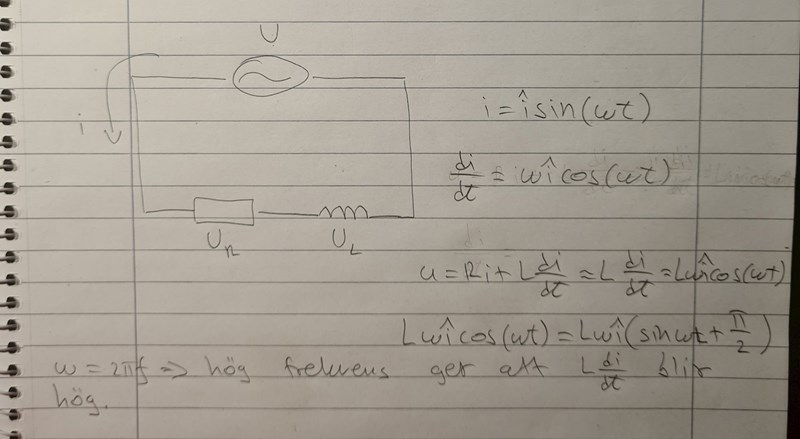 U
i = î sin(ωt)
i
di/dt = ωî cos(ωt)
U_R U_L
u = Ri + L di/dt ≈ L di/dt = Lωî cos(ωt)
Lωî cos(ωt) = Lωî (sin ωt + π/2)
ω = 2πf => hög frekvens ger att L di/dt blir
hög.